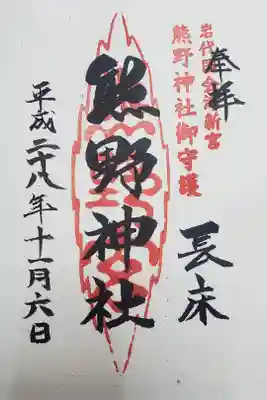 奉拝
岩代国会津新宮
熊野神社御守護
長床
熊野神社
平成二十八年十一月六日